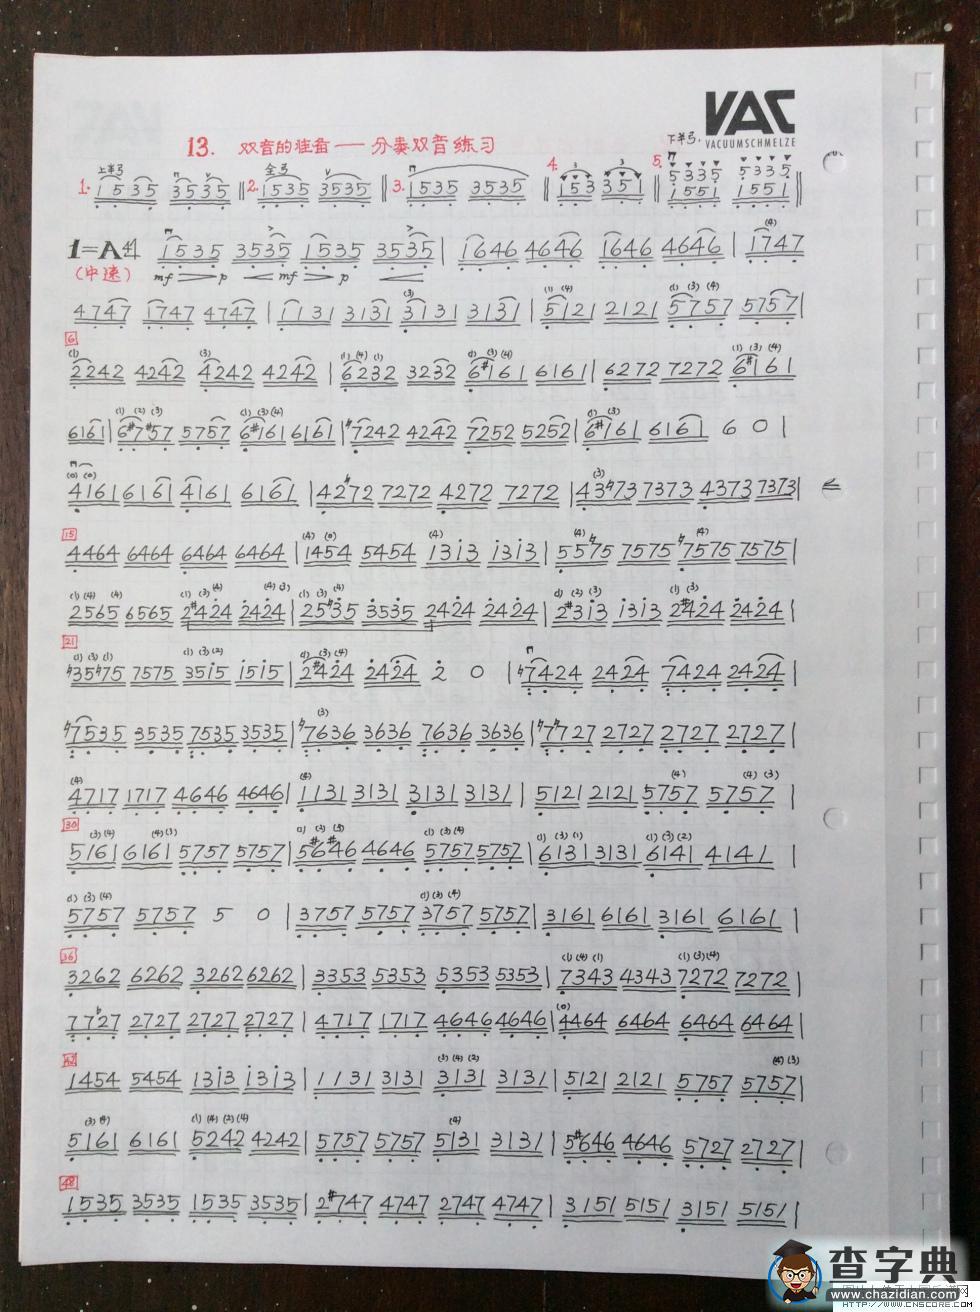 VAC
VACUUMSCHMELZE
13. 双音的准备——分奏双音练习
下半弓.
1. 上半弓 1535 3535 ‖ 2. 全弓 1535 3535 ‖ 3. 1535 3535 ‖ 4. 153 351 ‖ 5. 5335 5335 ‖
1551 1551
1=A 4/4 1535 3535 1535 3535 | 1646 4646 1646 4646 | 1747
(中速) mf > p < mf > p <
4747 1747 4747 | 1131 3131 3131 3131 | 5121 2121 5757 5757 |
6
2242 4242 4242 4242 | 6232 3232 6#161 6161 | 6272 7272 6#161
6161 | 6#7#57 5757 6#161 6161 | 7242 4242 7252 5252 | 6#161 6161 6 0 |
4161 6161 4161 6161 | 4272 7272 4272 7272 | 4373 7373 4373 7373 |
15
4464 6464 6464 6464 | 1454 5454 1313 1313 | 5575 7575 7575 7575 |
2565 6565 2#424 2424 | 2535 3535 2424 2424 | 2#313 1313 2#424 2424 |
21
3575 7575 3515 1515 | 2#424 2424 2 0 | 7424 2424 7424 2424 |
7535 3535 7535 3535 | 7636 3636 7636 3636 | 7727 2727 2727 2727 |
4717 1717 4646 4646 | 1131 3131 3131 3131 | 5121 2121 5757 5757 |
30
5161 6161 5757 5757 | 5#6#46 4646 5757 5757 | 6131 3131 6141 4141 |
5757 5757 5 0 | 3757 5757 3757 5757 | 3161 6161 3161 6161 |
36
3262 6262 3262 6262 | 3353 5353 5353 5353 | 7343 4343 7272 7272 |
77♭27 2727 2727 2727 | 4717 1717 4646 4646 | 4464 6464 6464 6464 |
42
1454 5454 1313 1313 | 1131 3131 3131 3131 | 5121 2121 5757 5757 |
5161 6161 5242 4242 | 5757 5757 5131 3131 | 5#646 4646 5727 2727 |
48
1535 3535 1535 3535 | 2#747 4747 2747 4747 | 3151 5151 3151 5151 |
查字典
www.chazidian.com
HTTP://WWW.CNSCORE.COM